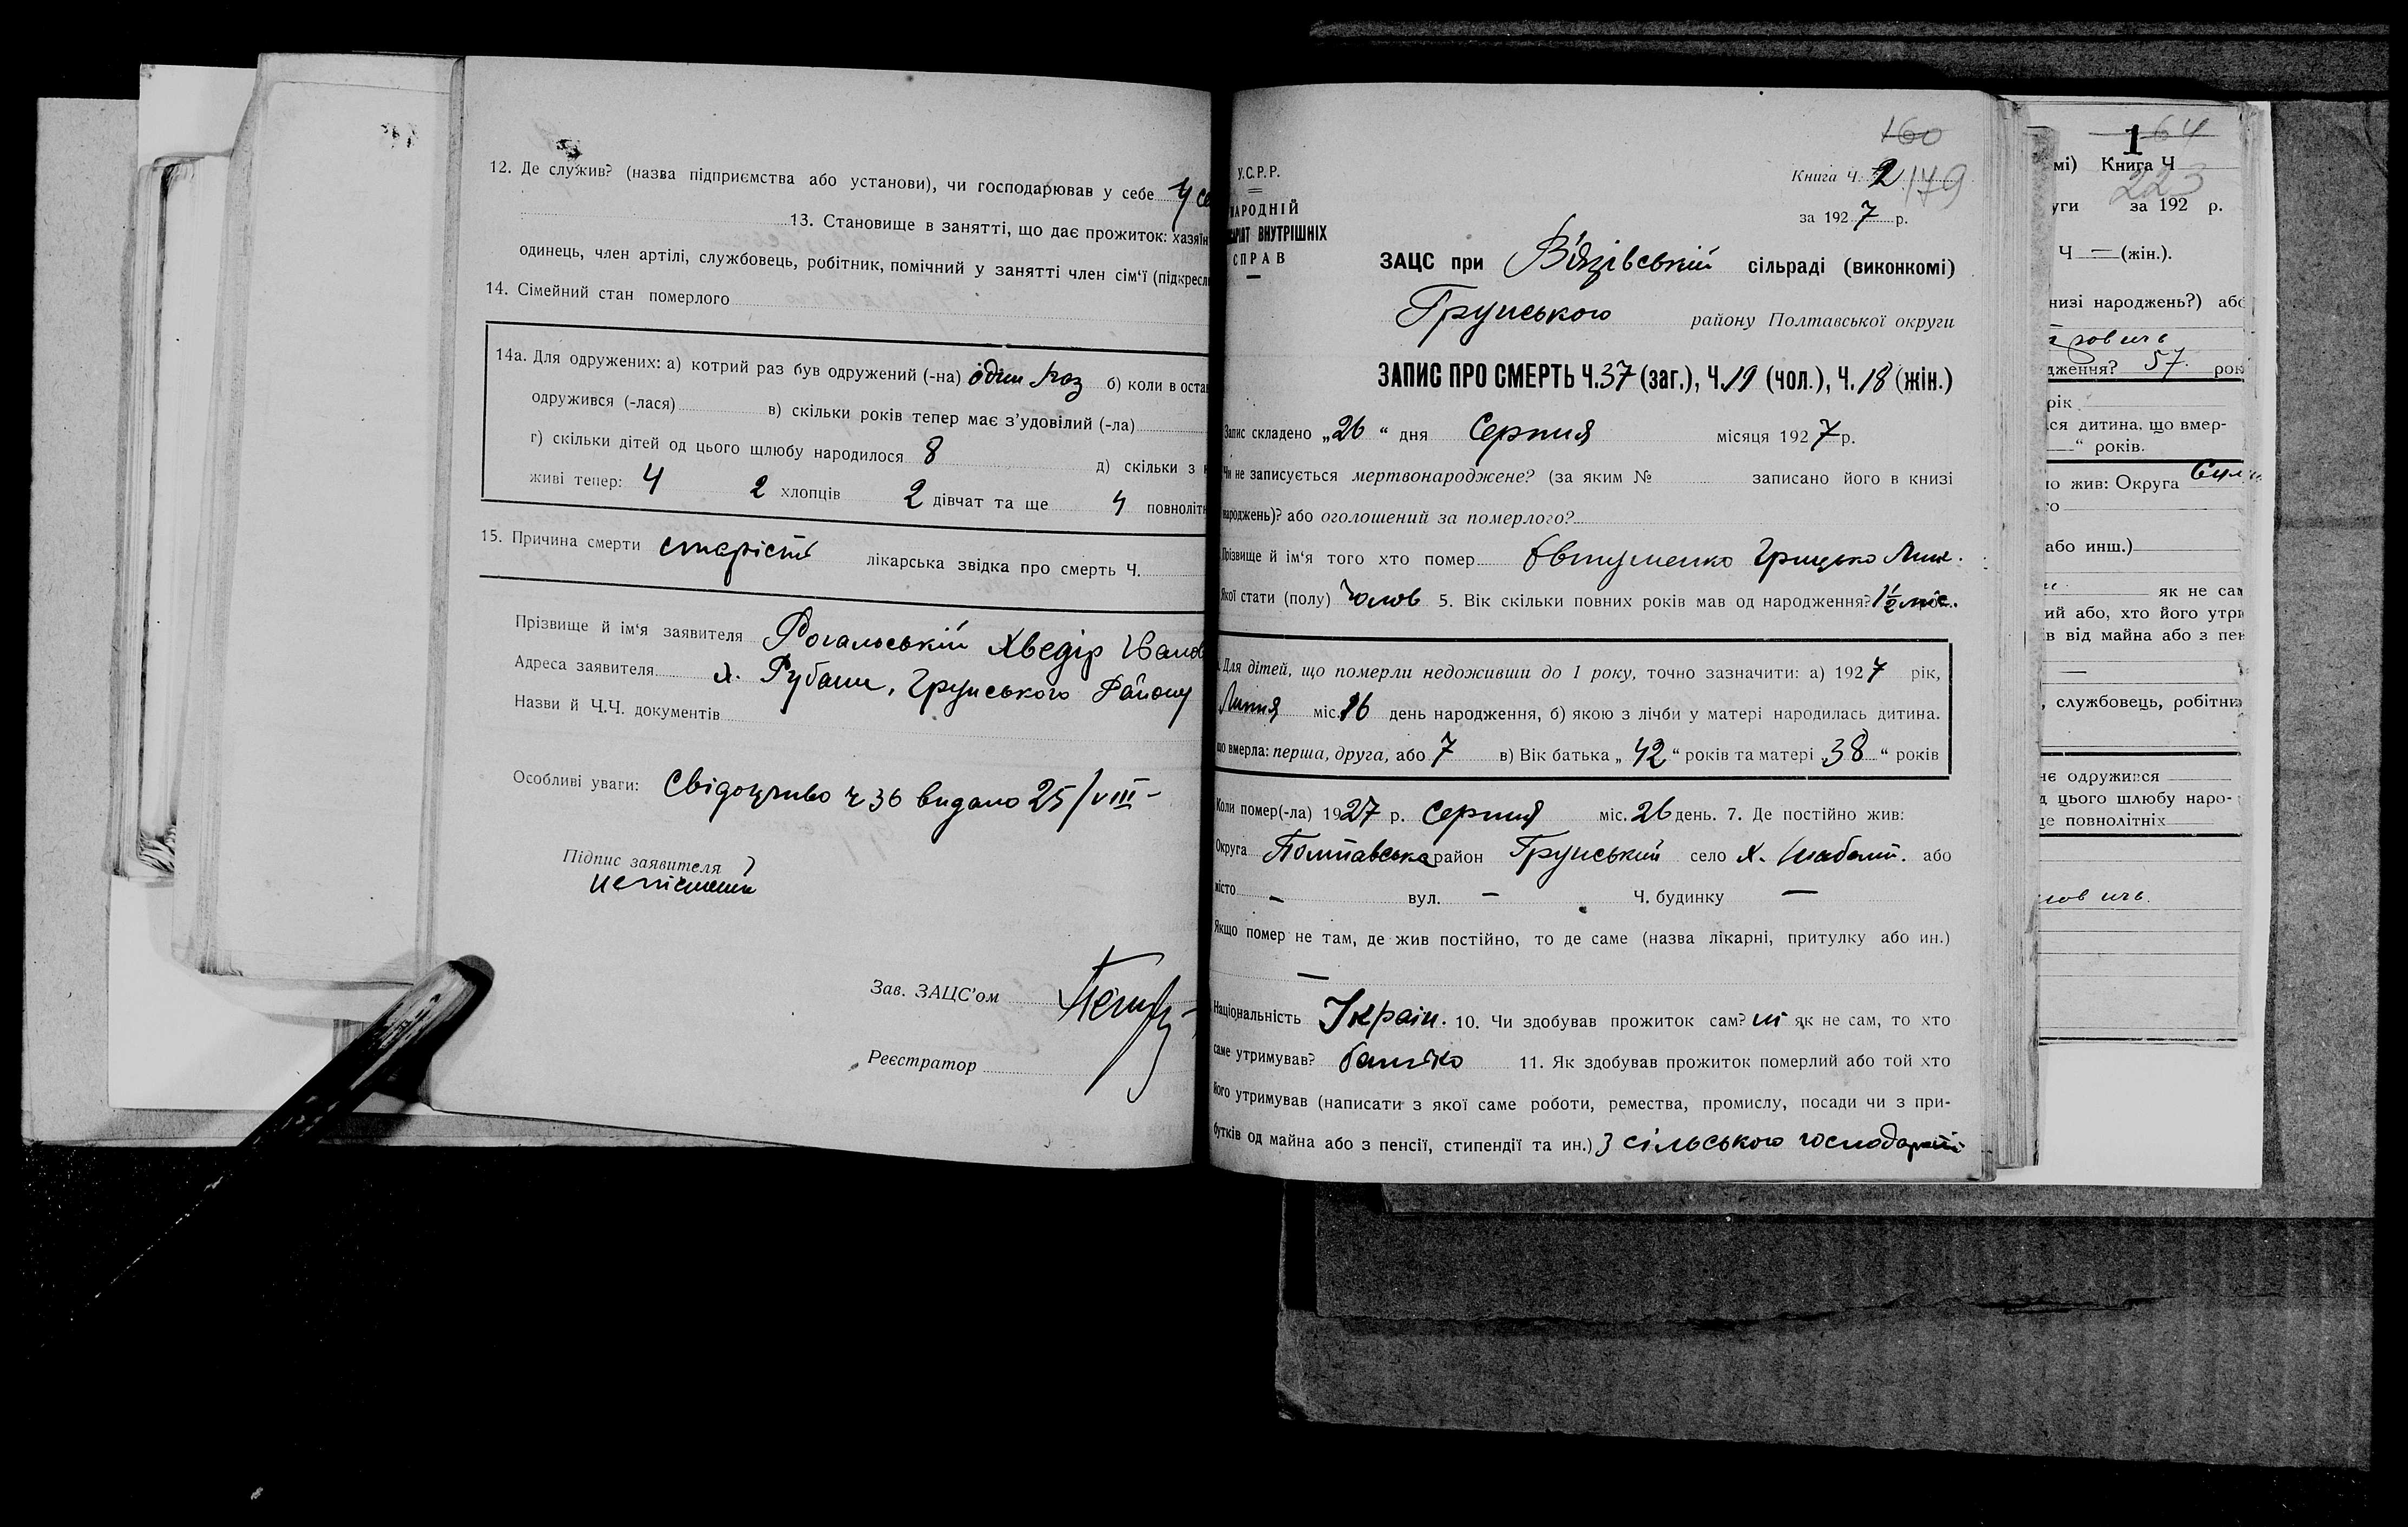 12. Де служив? (назва підприємства або установи), чи господарював у себе у се
13. Становище в занятті, що дає прожиток: хазяїн
одинець, член артілі, службовець, робітник, помічний у занятті член сім'ї (підкресл
14. Сімейний стан померлого
14а. Для одружених: а) котрий раз був одружений (-на) один раз б) коли в оста
одружився (-лася) в) скільки років тепер має з'удовілий (-ла)
г) скільки дітей од цього шлюбу народилося 8 д) скільки з н
живі тепер: 4 2 хлопців 2 дівчат та ще 4 повноліт
15. Причина смерти старість лікарська звідка про смерть Ч.
Прізвище й ім'я заявителя Рогальській Хведір Іванов
Адреса заявителя х. Рубани, Грунського Району
Назви й Ч.Ч. документів
Особливі уваги: Свідоцтво ч 36 видано 25/VIII-
Підпис заявителя
неписьменній
Зав. ЗАЦС'ом
Реєстратор
160
У.С.Р.Р.
Книга Ч. 2 179
НАРОДНІЙ
за 1927 р.
САРІЯТ ВНУТРІШНІХ
СПРАВ
ЗАЦС при Вязівській сільраді (виконкомі)
Грунського району Полтавської округи
ЗАПИС ПРО СМЕРТЬ Ч.37 (заг.), Ч.19 (чол.), Ч.18 (жін.)
Запис складено „26“ дня Серпня місяця 1927 р.
Чи не записується мертвонароджене? (за яким № записано його в книзі
народжень)? або оголошений за померлого?
Прізвище й ім'я того хто помер Євтушенко Грицько
Якої стати (полу) чолов 5. Вік скільки повних років мав од народження? 1½ міс.
Для дітей, що померли недоживши до 1 року, точно зазначити: а) 1927 рік,
Липня міс. 16 день народження, б) якою з лічби у матері народилась дитина.
що вмерла: перша, друга, або 7 в) Вік батька „42“ років та матері „38“ років
Коли помер(-ла) 1927 р. Серпня міс. 26 день. 7. Де постійно жив:
Округа Полтавська район Грунський село х. Шабані. або
місто — вул. — Ч. будинку —
Якщо помер не там, де жив постійно, то де саме (назва лікарні, притулку або ин.)
—
Національність Україн. 10. Чи здобував прожиток сам? ні як не сам, то хто
саме утримував? батько 11. Як здобував прожиток померлий або той хто
його утримував (написати з якої саме роботи, ремества, промислу, посади чи з при-
бутків од майна або з пенсії, стипендії та ин.) з сільського господарств
164
мі) Книга Ч
223
уги за 192 р.
Ч — (жін.).
низі народжень?) або
дження? 57. рок
рік
ся дитина, що вмер-
—“ років.
о жив: Округа
го
або инш.)
як не сам
ий або, хто його утри
в від майна або з пен
—
, службовець, робітни
нє одружився
д цього шлюбу наро-
ще повнолітніх